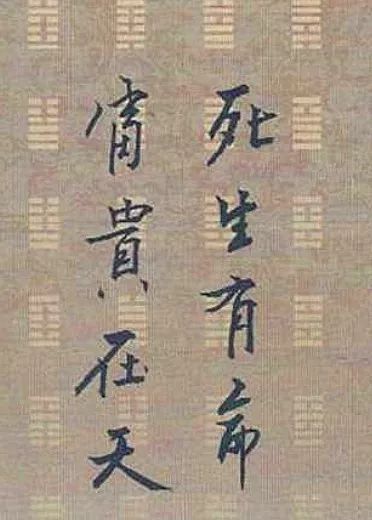 死生有命
富貴在天